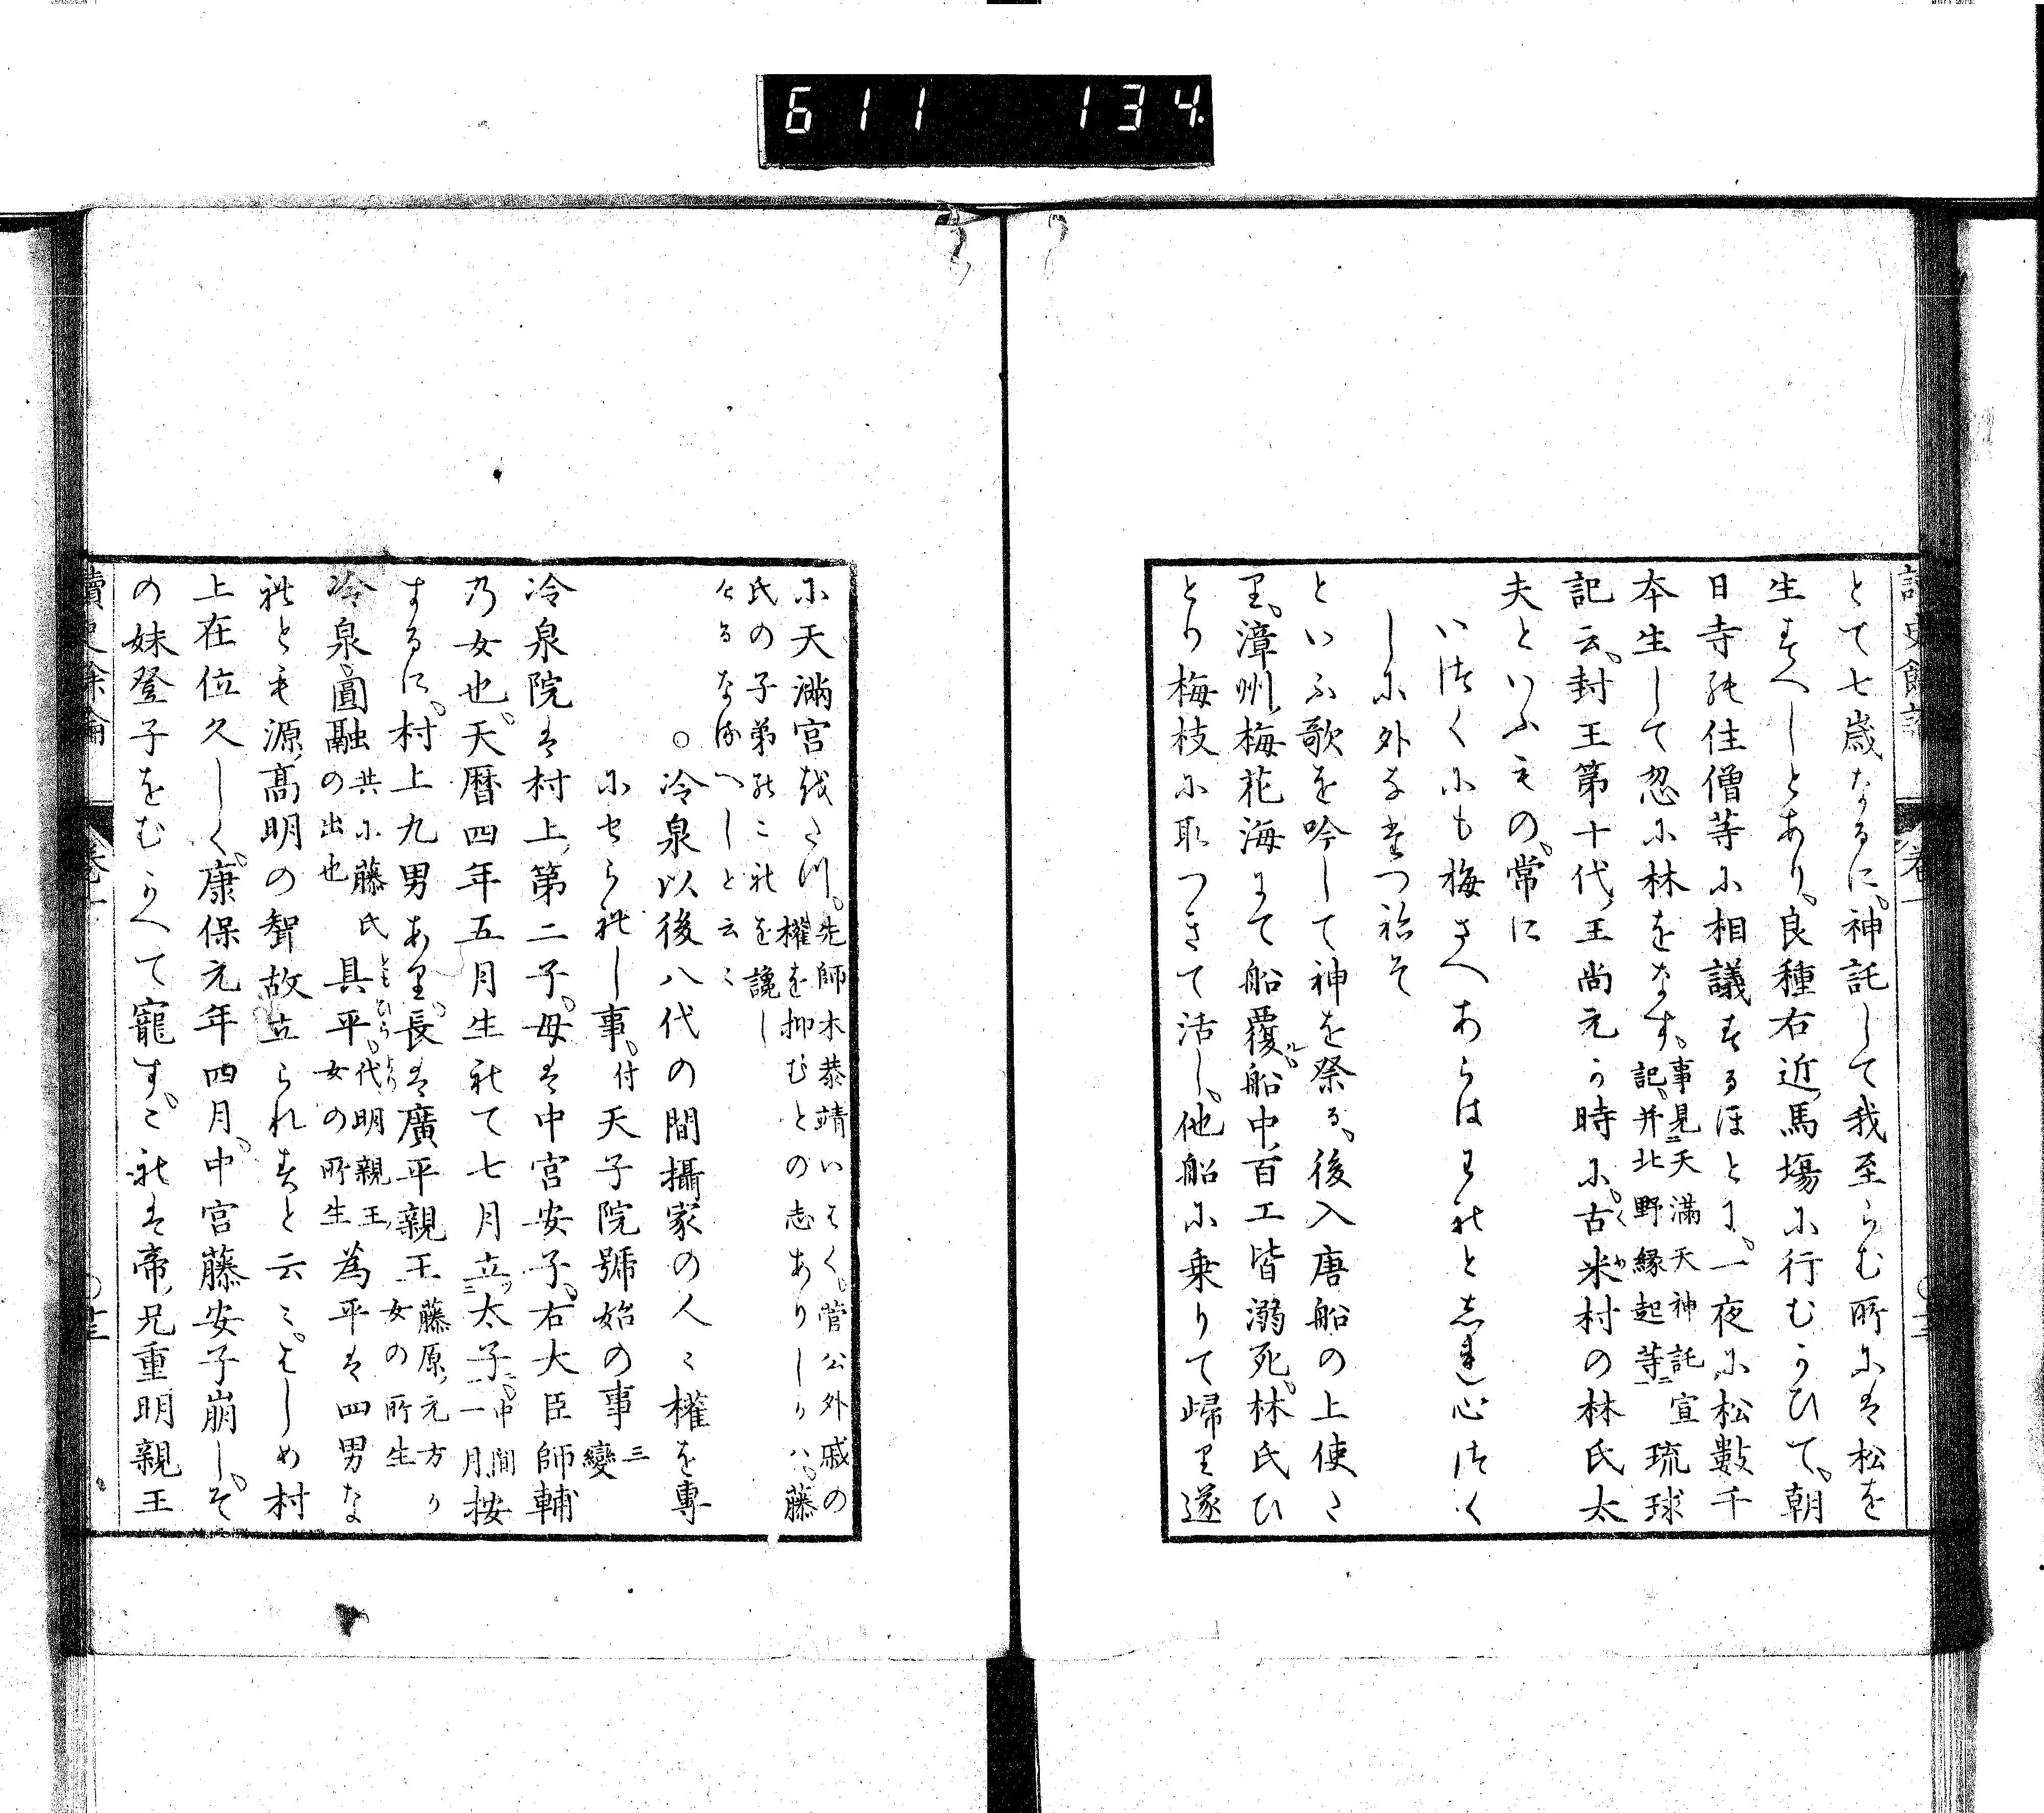 611 134
とて七歳なるに。神託して我至らむ所には松を
生すへしとあり。良種右近馬場に行むかひて。朝
日寺の住僧等に相議するほとに。一夜に松數千
本生して忽に林をなす。事見天滿天神託宣記。并北野縁起等 琉球
記云。封王第十代王尚元か時に。古米村の林氏太
夫といふもの。常に
いつくにも梅さへあらはわれとしれ心つく
しに外なたつねそ
といふ歌を吟して神を祭る。後入唐船の上使た
り。漳州梅花海にて船覆ル。船中百工皆溺死。林氏ひ
とり梅枝に取つきて活し。他船に乗りて歸り遂
に天滿宮をたつ。先師木恭靖いはく。菅公外戚の權を抑むとの志ありしかハ。藤
氏の子弟のこれを讒し
けるなるへしと云々
○冷泉以後八代の間攝家の人々權を專
にせられし事。付天子院號始の事 三變
冷泉院は村上第二子。母は中宮安子。右大臣師輔
乃女也。天暦四年五月生れて七月立太子。中間一月。按
するに。村上九男あり。長は廣平親王 藤原元方か女の所生
冷泉圓融 共に藤氏の出也 具平。代明親王女の所生 為平は四男な
れとも源高明の聟故立られすと云々。はしめ村
上在位久しく。康保元年四月。中宮藤安子崩し。そ
の妹登子をむかへて寵す。これは帝兄重明親王
讀史餘論 卷一